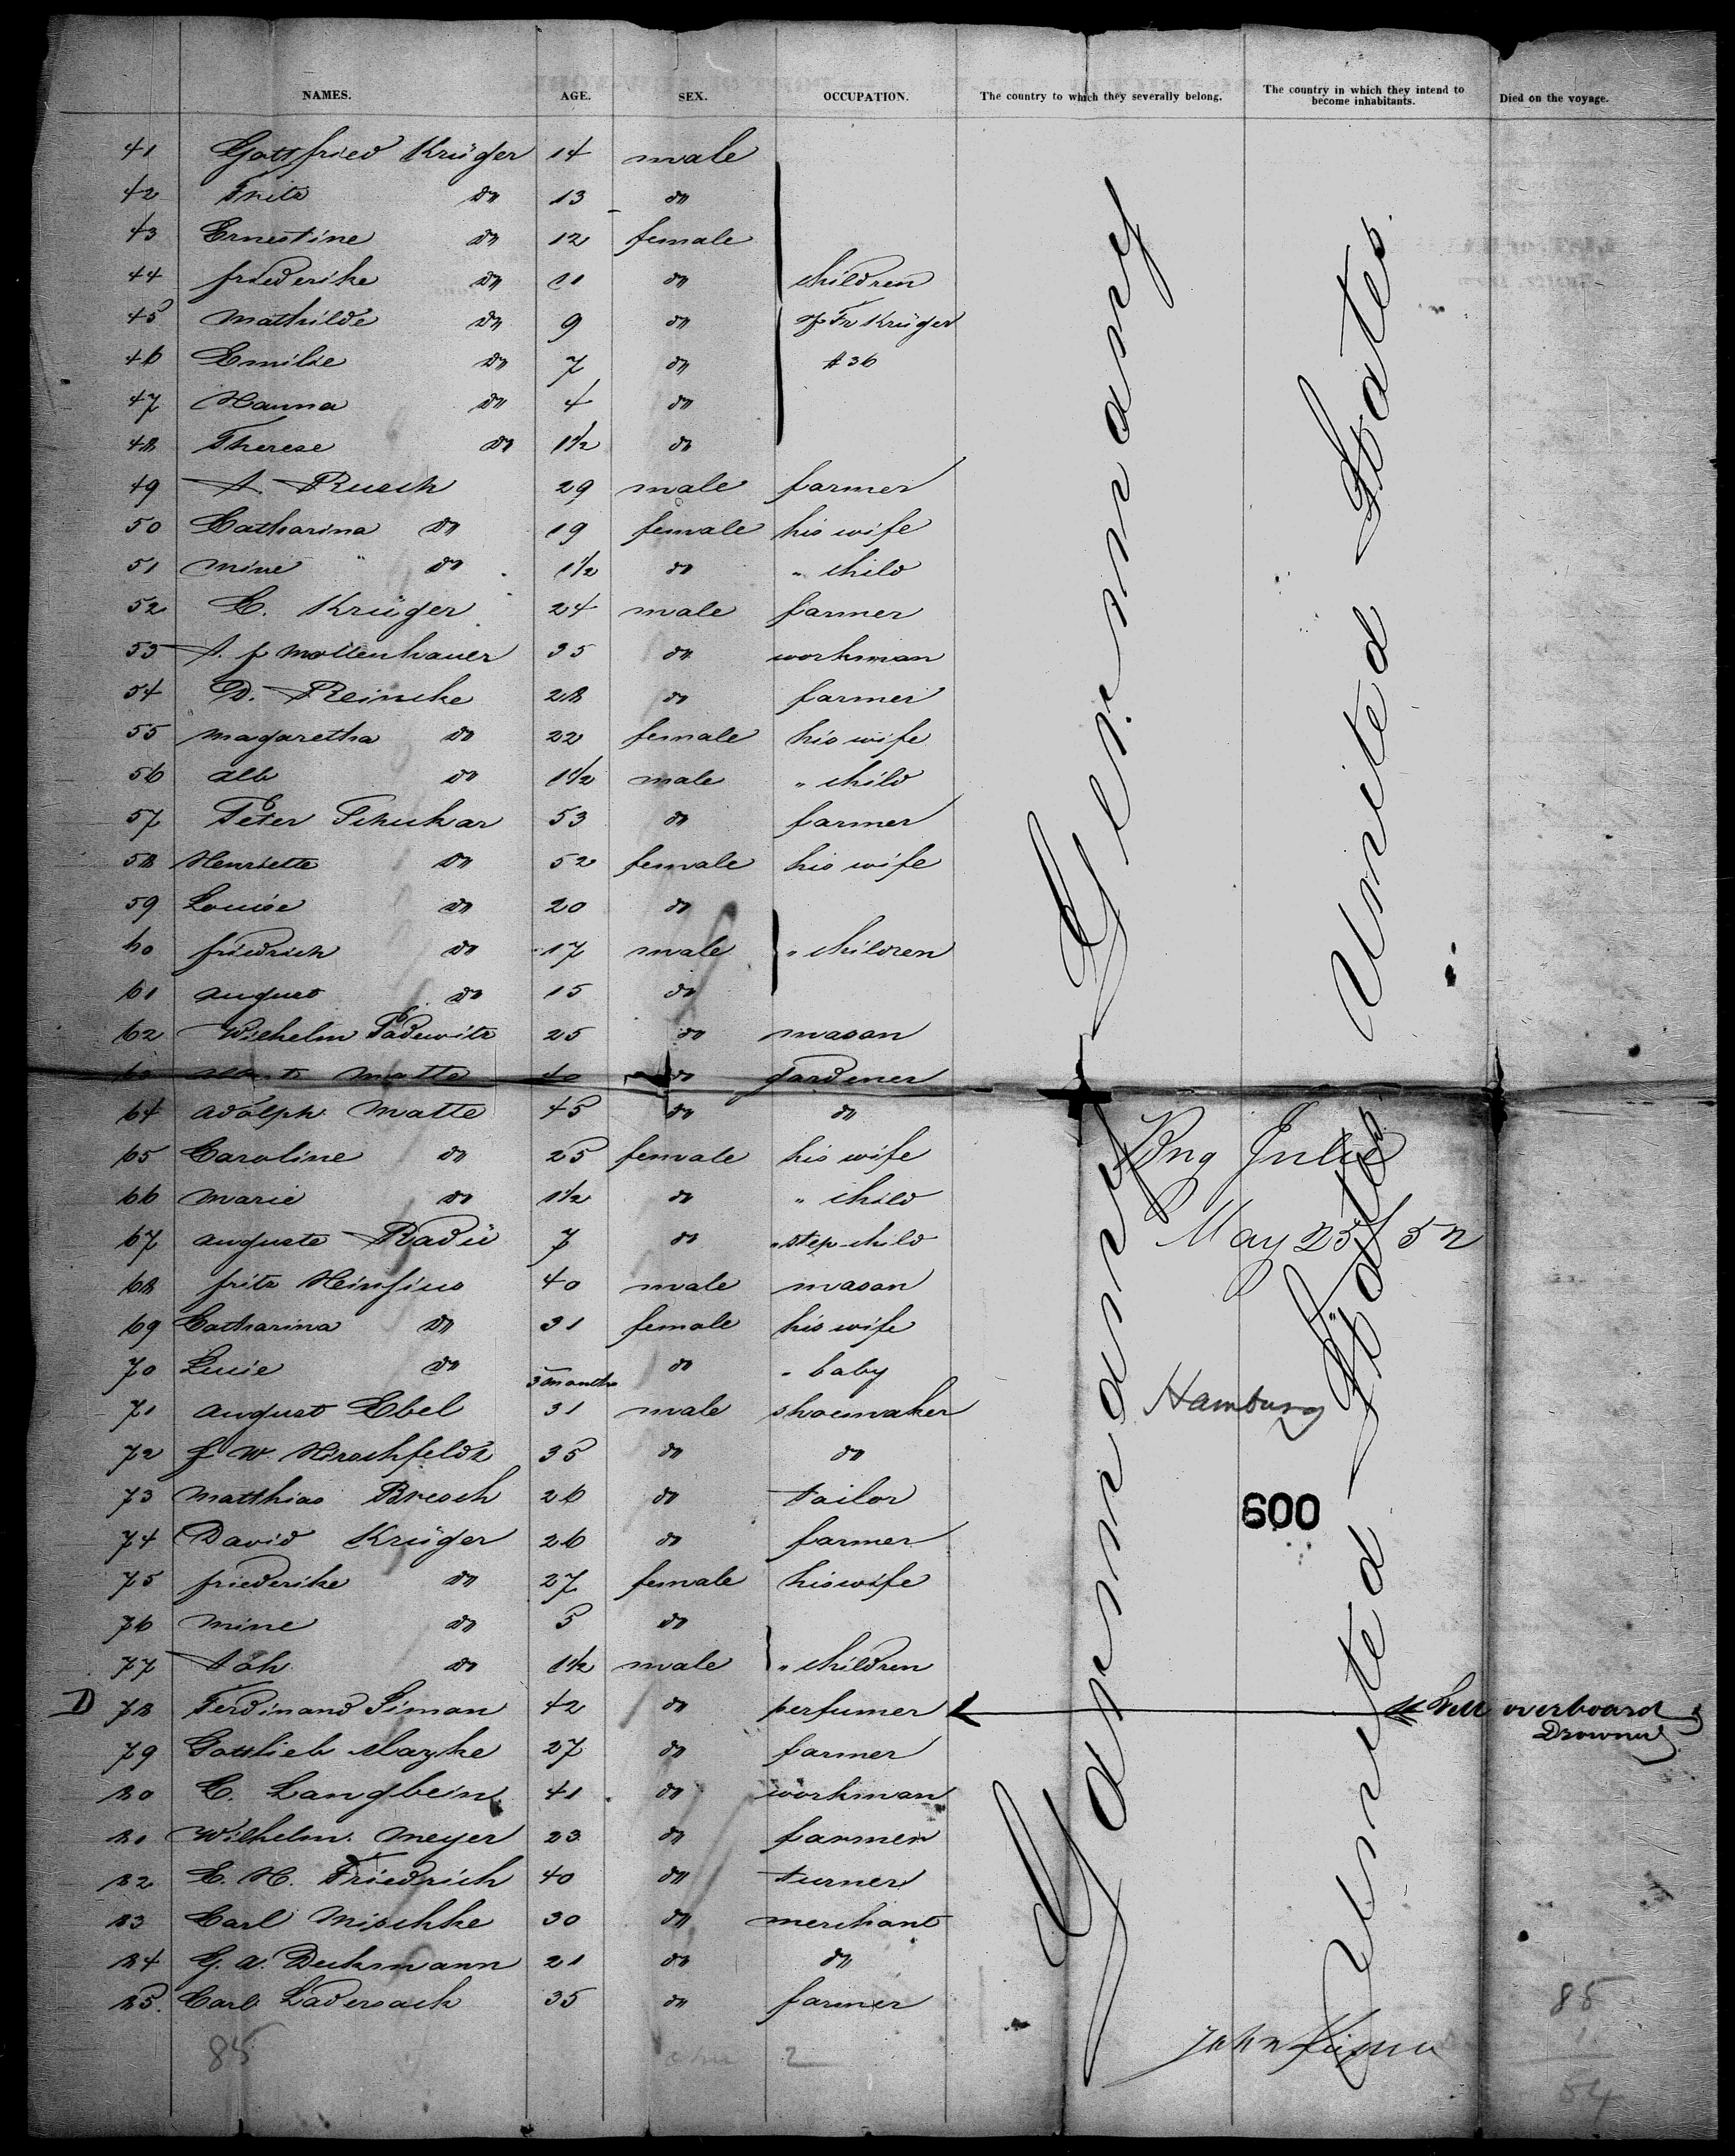 NAMES. AGE. SEX. OCCUPATION. The country to which they severally belong. The country in which they intend to become inhabitants. Died on the voyage.
41 Gottfried Krüger 14 male
42 Fritz do 13 do
43 Ernestine do 12 female
44 friederike do 11 do children
45 Mathilde do 9 do of Fr Krüger
46 Emilie do 7 do # 36
47 Hanna do 4 do
48 Therese do 1½ do
49 A. Rusch 29 male farmer
50 Catharina do 19 female his wife
51 Mine do 1½ do " child
52 C. Krüger 24 male farmer
53 A. f Mollenhauer 35 do workman
54 D. Reincke 28 do farmer
55 Magaretha do 22 female his wife
56 Alb do 1½ male " child
57 Peter Schukar 53 do farmer
58 Henriette do 52 female his wife
59 Louise do 20 do
60 friedrich do 17 male " children
61 August do 15 do
62 Wilhelm Padewitz 25 do mason
Matte 40 do gardener
64 Adolph Matte 45 do do
65 Caroline do 25 female his wife
66 Marie do 1½ do " child
67 Auguste Radü 7 do " step-child
68 fritz Heinsius 40 male mason
69 Catharina do 31 female his wife
70 Lucie do 3 months do " baby
71 August Ebel 31 male shoemaker
72 f W. Hirschfeldt 35 do do
73 Matthias Bresch 26 do tailor
74 David Krüger 26 do farmer
75 friederike do 27 female his wife
76 Mine do 5 do
77 Joh do 1½ male " children
D 78 Ferdinand Siman 42 do perfumer Fell overboard
Drowned
79 Gottlieb 27 do farmer
80 C. Langbein 41 do workman
81 Wilhelm Meyer 23 do farmer
82 C. H. Friedrich 40 do turner
83 Carl Mischke 30 do merchant
84 G. A. Deckmann 21 do do
85. Carl Ladersack 35 do farmer
Germany
United States.
Brig Julie
May 25/52
Hamburg
600
Germany
United States.
John
85
2
85
1
84